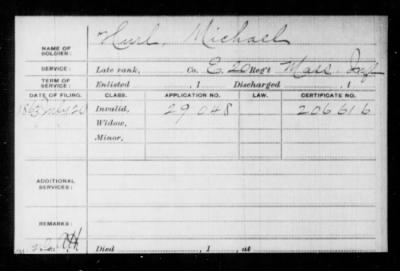 NAME OF SOLDIER: Hurl, Michael
SERVICE: Late rank, Co. E, 20 Reg't Mass. Inf
TERM OF SERVICE: Enlisted , 1 . Discharged , 1 .
DATE OF FILING. CLASS. APPLICATION NO. LAW. CERTIFICATE NO.
1863 July 20 Invalid, 29048 206616
Widow,
Minor,
ADDITIONAL SERVICES:
REMARKS:
Died , 1 , at